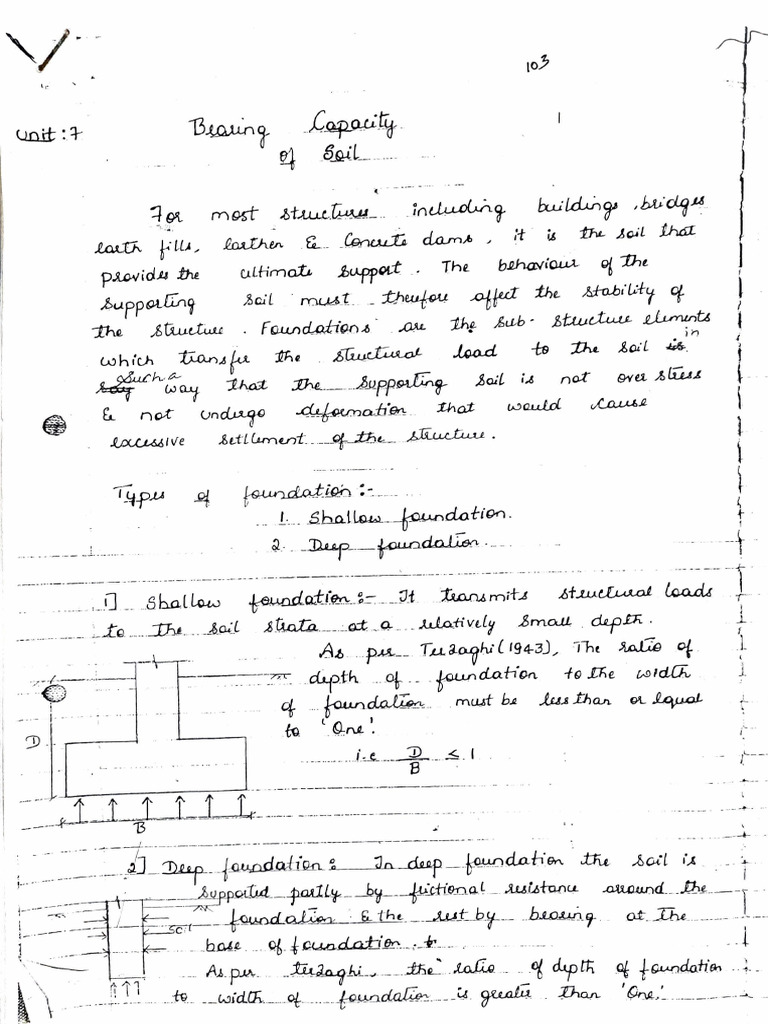 103
Unit: 7
Bearing Capacity
1
of Soil
For most structures including buildings, bridges
earth fills, earthen & Concrete dams, it is the soil that
provides the ultimate support. The behaviour of the
supporting soil must therefore affect the stability of
the structure. Foundations are the sub-structure elements
which transfer the structural load to the soil in
such a way that the supporting soil is not over stress
& not undergo deformation that would cause
excessive settlement of the structure.
Types of foundation :-
1. Shallow foundation.
2. Deep foundation.
1] Shallow foundation :- It transmits structural loads
to the soil strata at a relatively small depth.
As per Terzaghi (1943), The ratio of
depth of foundation to the width
of foundation must be less than or equal
to 'One'.
i.e D/B ≤ 1
D
B
2] Deep foundation : In deep foundation the soil is
supported partly by frictional resistance around the
foundation & the rest by bearing at the
soil
base of foundation.
As per terzaghi, the ratio of depth of foundation
to width of foundation is greater than 'One'.